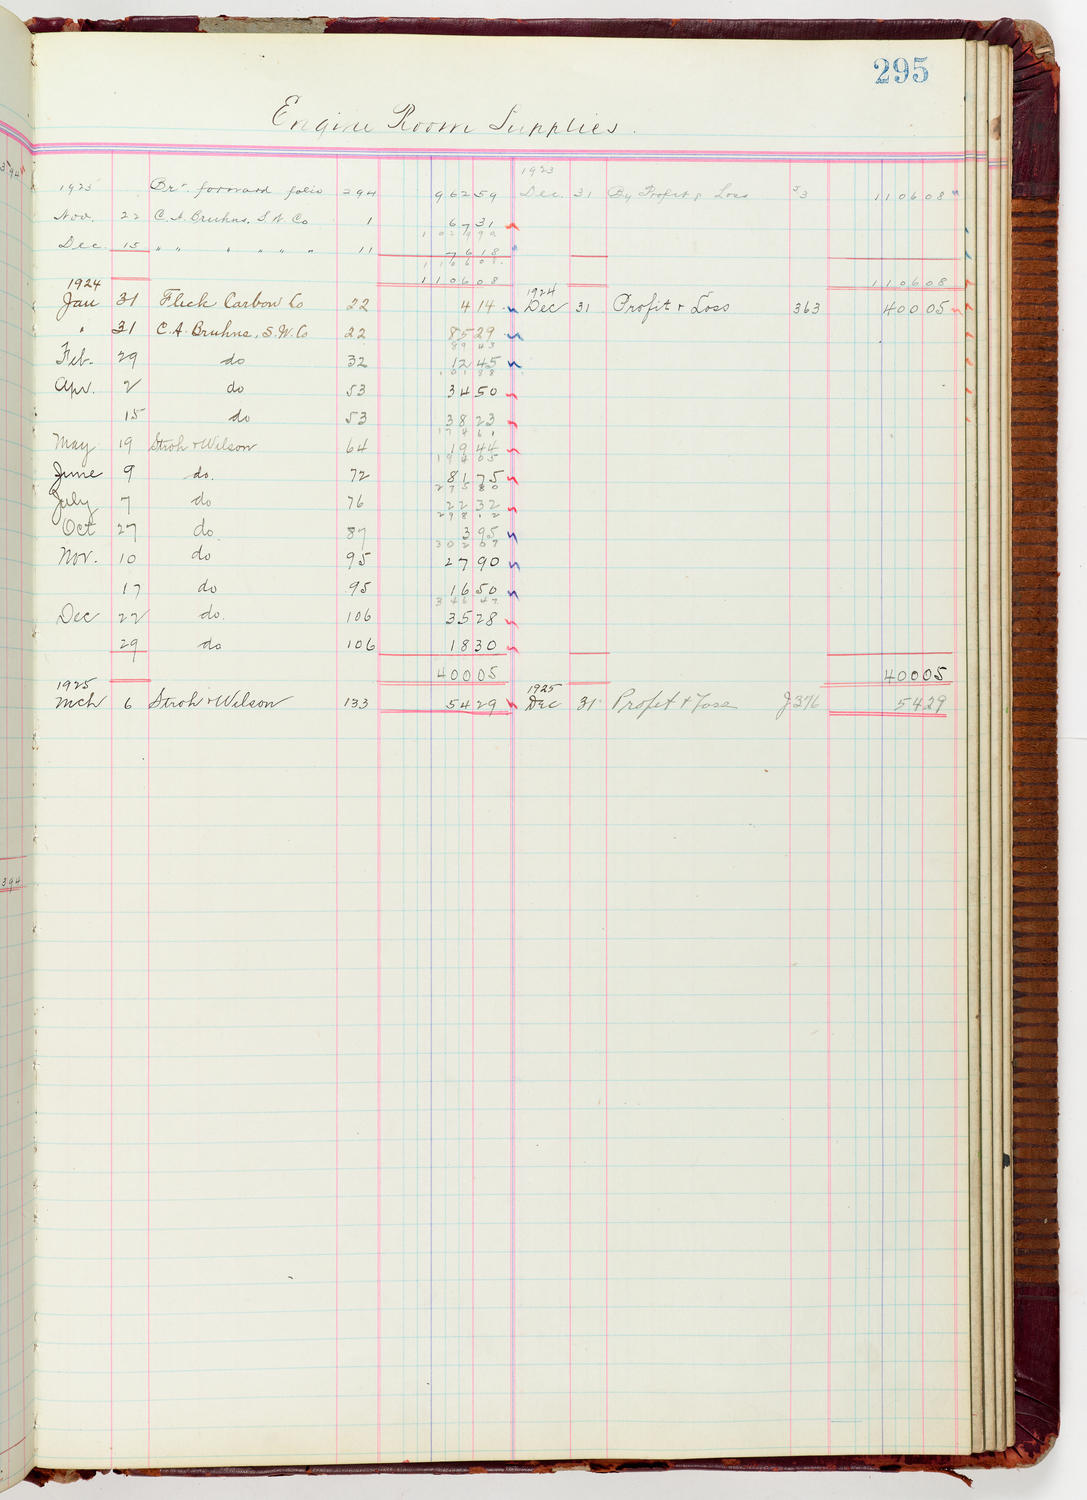 295
Engine Room Supplies.
1923
1923 Brt. forward folio 294 962 59 Dec. 31 By Profit & Loss J3 1106 08
Nov. 22 C. A. Bruhns, S. W. Co 1 67 31
1029 90
Dec. 15 " " " " " " 11 76 18
1106 08
1106 08 1106 08
1924 1924
Jan 31 Flick Carbow Co 22 4 14 Dec 31 Profit & Loss 363 400 05
" 31 C. A. Bruhns, S. W. Co 22 85 29
89 43
Feb. 29 do 32 12 45
101 88
Apr. 2 do 53 34 50
15 do 53 38 23
174 61
May 19 Stroh & Wilson 64 19 44
194 05
June 9 do. 72 81 75
275 80
July 7 do 76 22 32
298 12
Oct 27 do. 87 3 95
302 07
Nov. 10 do 95 27 90
17 do 95 16 50
346 47
Dec 22 do. 106 35 28
29 do 106 18 30
400 05 400 05
1925 1925
Mch 6 Stroh & Wilson 133 54 29 Dec 31 Profit & Loss J376 54 29
394